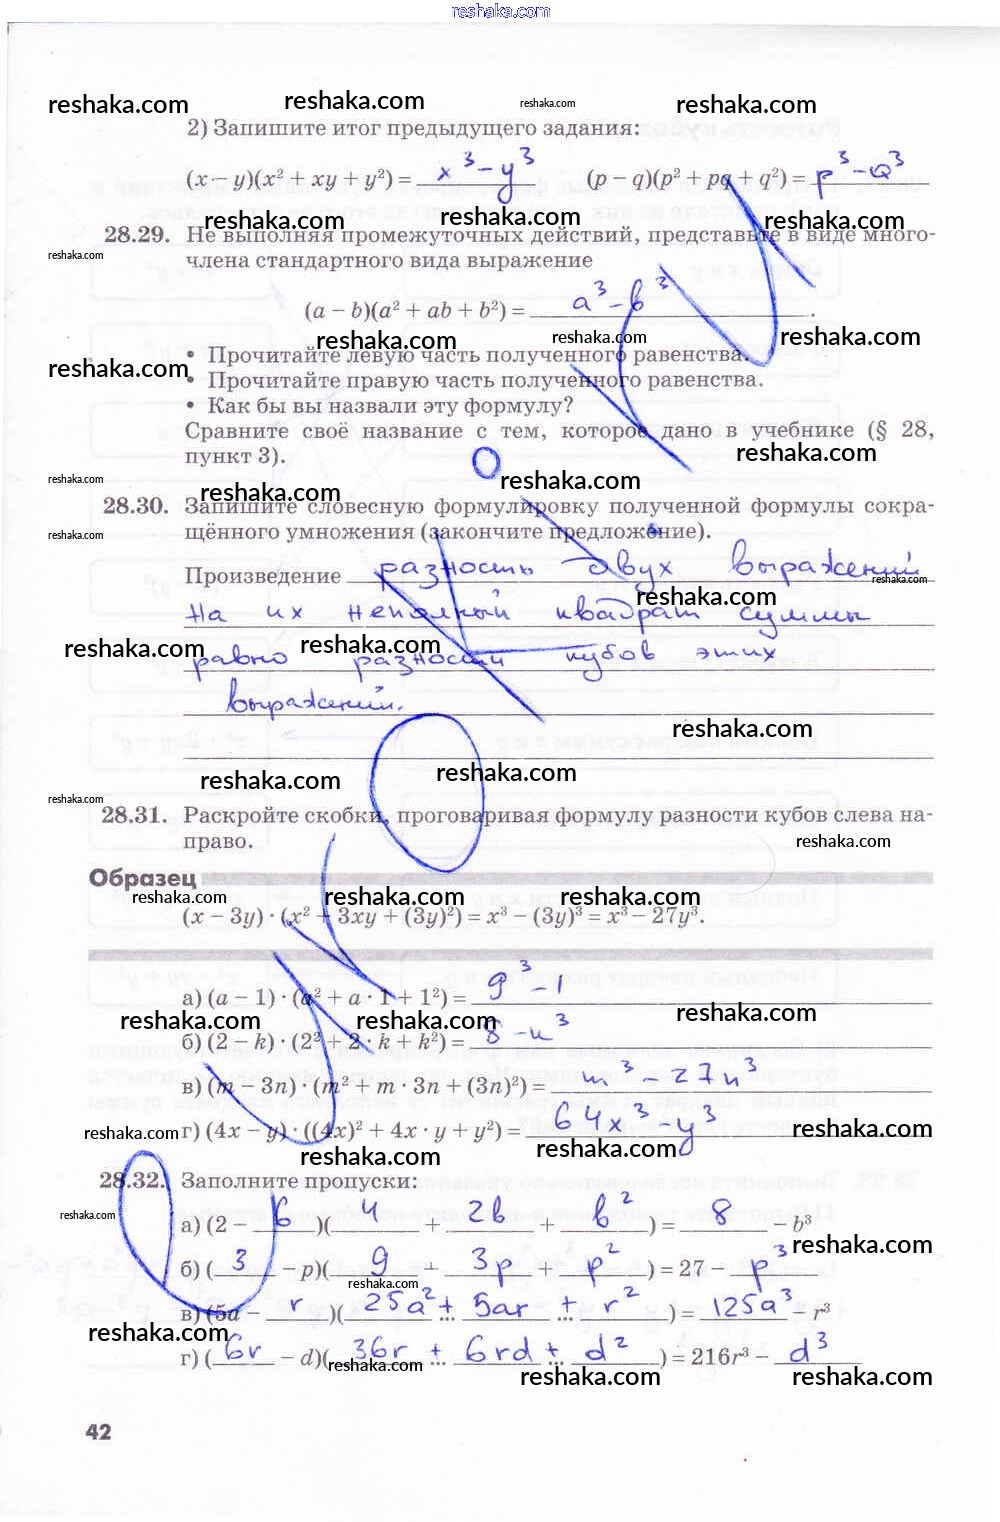 reshaka.com
reshaka.com reshaka.com reshaka.com reshaka.com
2) Запишите итог предыдущего задания:
(x − y)(x² + xy + y²) = x³ − y³ (p − q)(p² + pq + q²) = p³ − q³
reshaka.com reshaka.com reshaka.com
28.29. Не выполняя промежуточных действий, представьте в виде много-
reshaka.com члена стандартного вида выражение
(a − b)(a² + ab + b²) = a³ − b³.
reshaka.com reshaka.com reshaka.com
• Прочитайте левую часть полученного равенства.
reshaka.com
• Прочитайте правую часть полученного равенства.
• Как бы вы назвали эту формулу?
Сравните своё название с тем, которое дано в учебнике (§ 28,
пункт 3). reshaka.com
reshaka.com reshaka.com reshaka.com
28.30. Запишите словесную формулировку полученной формулы сокра-
reshaka.com щённого умножения (закончите предложение).
Произведение разность двух выражений reshaka.com
reshaka.com
на их неполный квадрат суммы
reshaka.com reshaka.com reshaka.com
равно разности кубов этих
выражений.
reshaka.com
reshaka.com reshaka.com
reshaka.com
28.31. Раскройте скобки, проговаривая формулу разности кубов слева на-
право. reshaka.com
Образец
reshaka.com reshaka.com reshaka.com
(x − 3y) · (x² + 3xy + (3y)²) = x³ − (3y)³ = x³ − 27y³.
а) (a − 1) · (a² + a · 1 + 1²) = 9³ − 1
reshaka.com reshaka.com reshaka.com
б) (2 − k) · (2² + 2 · k + k²) = 8 − к³
в) (m − 3n) · (m² + m · 3n + (3n)²) = m³ − 27n³
г) (4x − y) · ((4x)² + 4x · y + y²) = 64x³ − y³
reshaka.com reshaka.com reshaka.com reshaka.com
28.32. Заполните пропуски:
а) (2 − b)(4 + 2b + b²) = 8 − b³
reshaka.com reshaka.com
б) (3 − p)(9 + 3p + p²) = 27 − p³
reshaka.com
в) (5a − r)(25a² + ... 5ar + ... r²) = 125a³ − r³
reshaka.com
г) (6r − d)(36r + ... 6rd + ... d²) = 216r³ − d³
reshaka.com reshaka.com reshaka.com
42